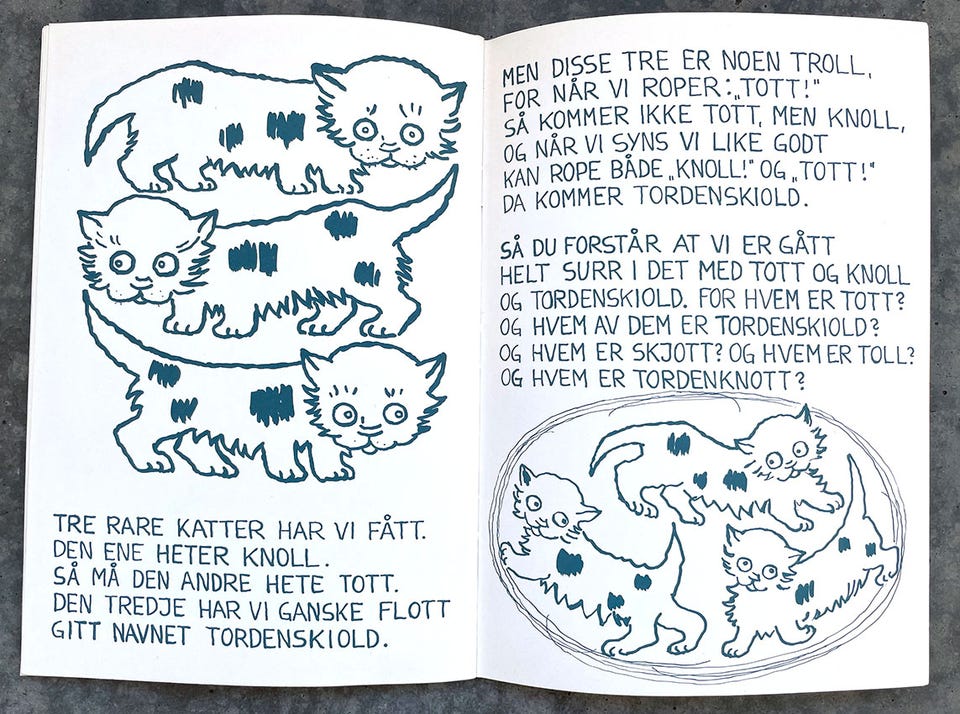 TRE RARE KATTER HAR VI FÅTT.
DEN ENE HETER KNOLL.
SÅ MÅ DEN ANDRE HETE TOTT.
DEN TREDJE HAR VI GANSKE FLOTT
GITT NAVNET TORDENSKIOLD.
MEN DISSE TRE ER NOEN TROLL,
FOR NÅR VI ROPER: „TOTT!"
SÅ KOMMER IKKE TOTT, MEN KNOLL,
OG NÅR VI SYNS VI LIKE GODT
KAN ROPE BÅDE „KNOLL!" OG „TOTT!"
DA KOMMER TORDENSKIOLD.
SÅ DU FORSTÅR AT VI ER GÅTT
HELT SURR I DET MED TOTT OG KNOLL
OG TORDENSKIOLD. FOR HVEM ER TOTT?
OG HVEM AV DEM ER TORDENSKIOLD?
OG HVEM ER SKJOTT? OG HVEM ER TOLL?
OG HVEM ER TORDENKNOTT?